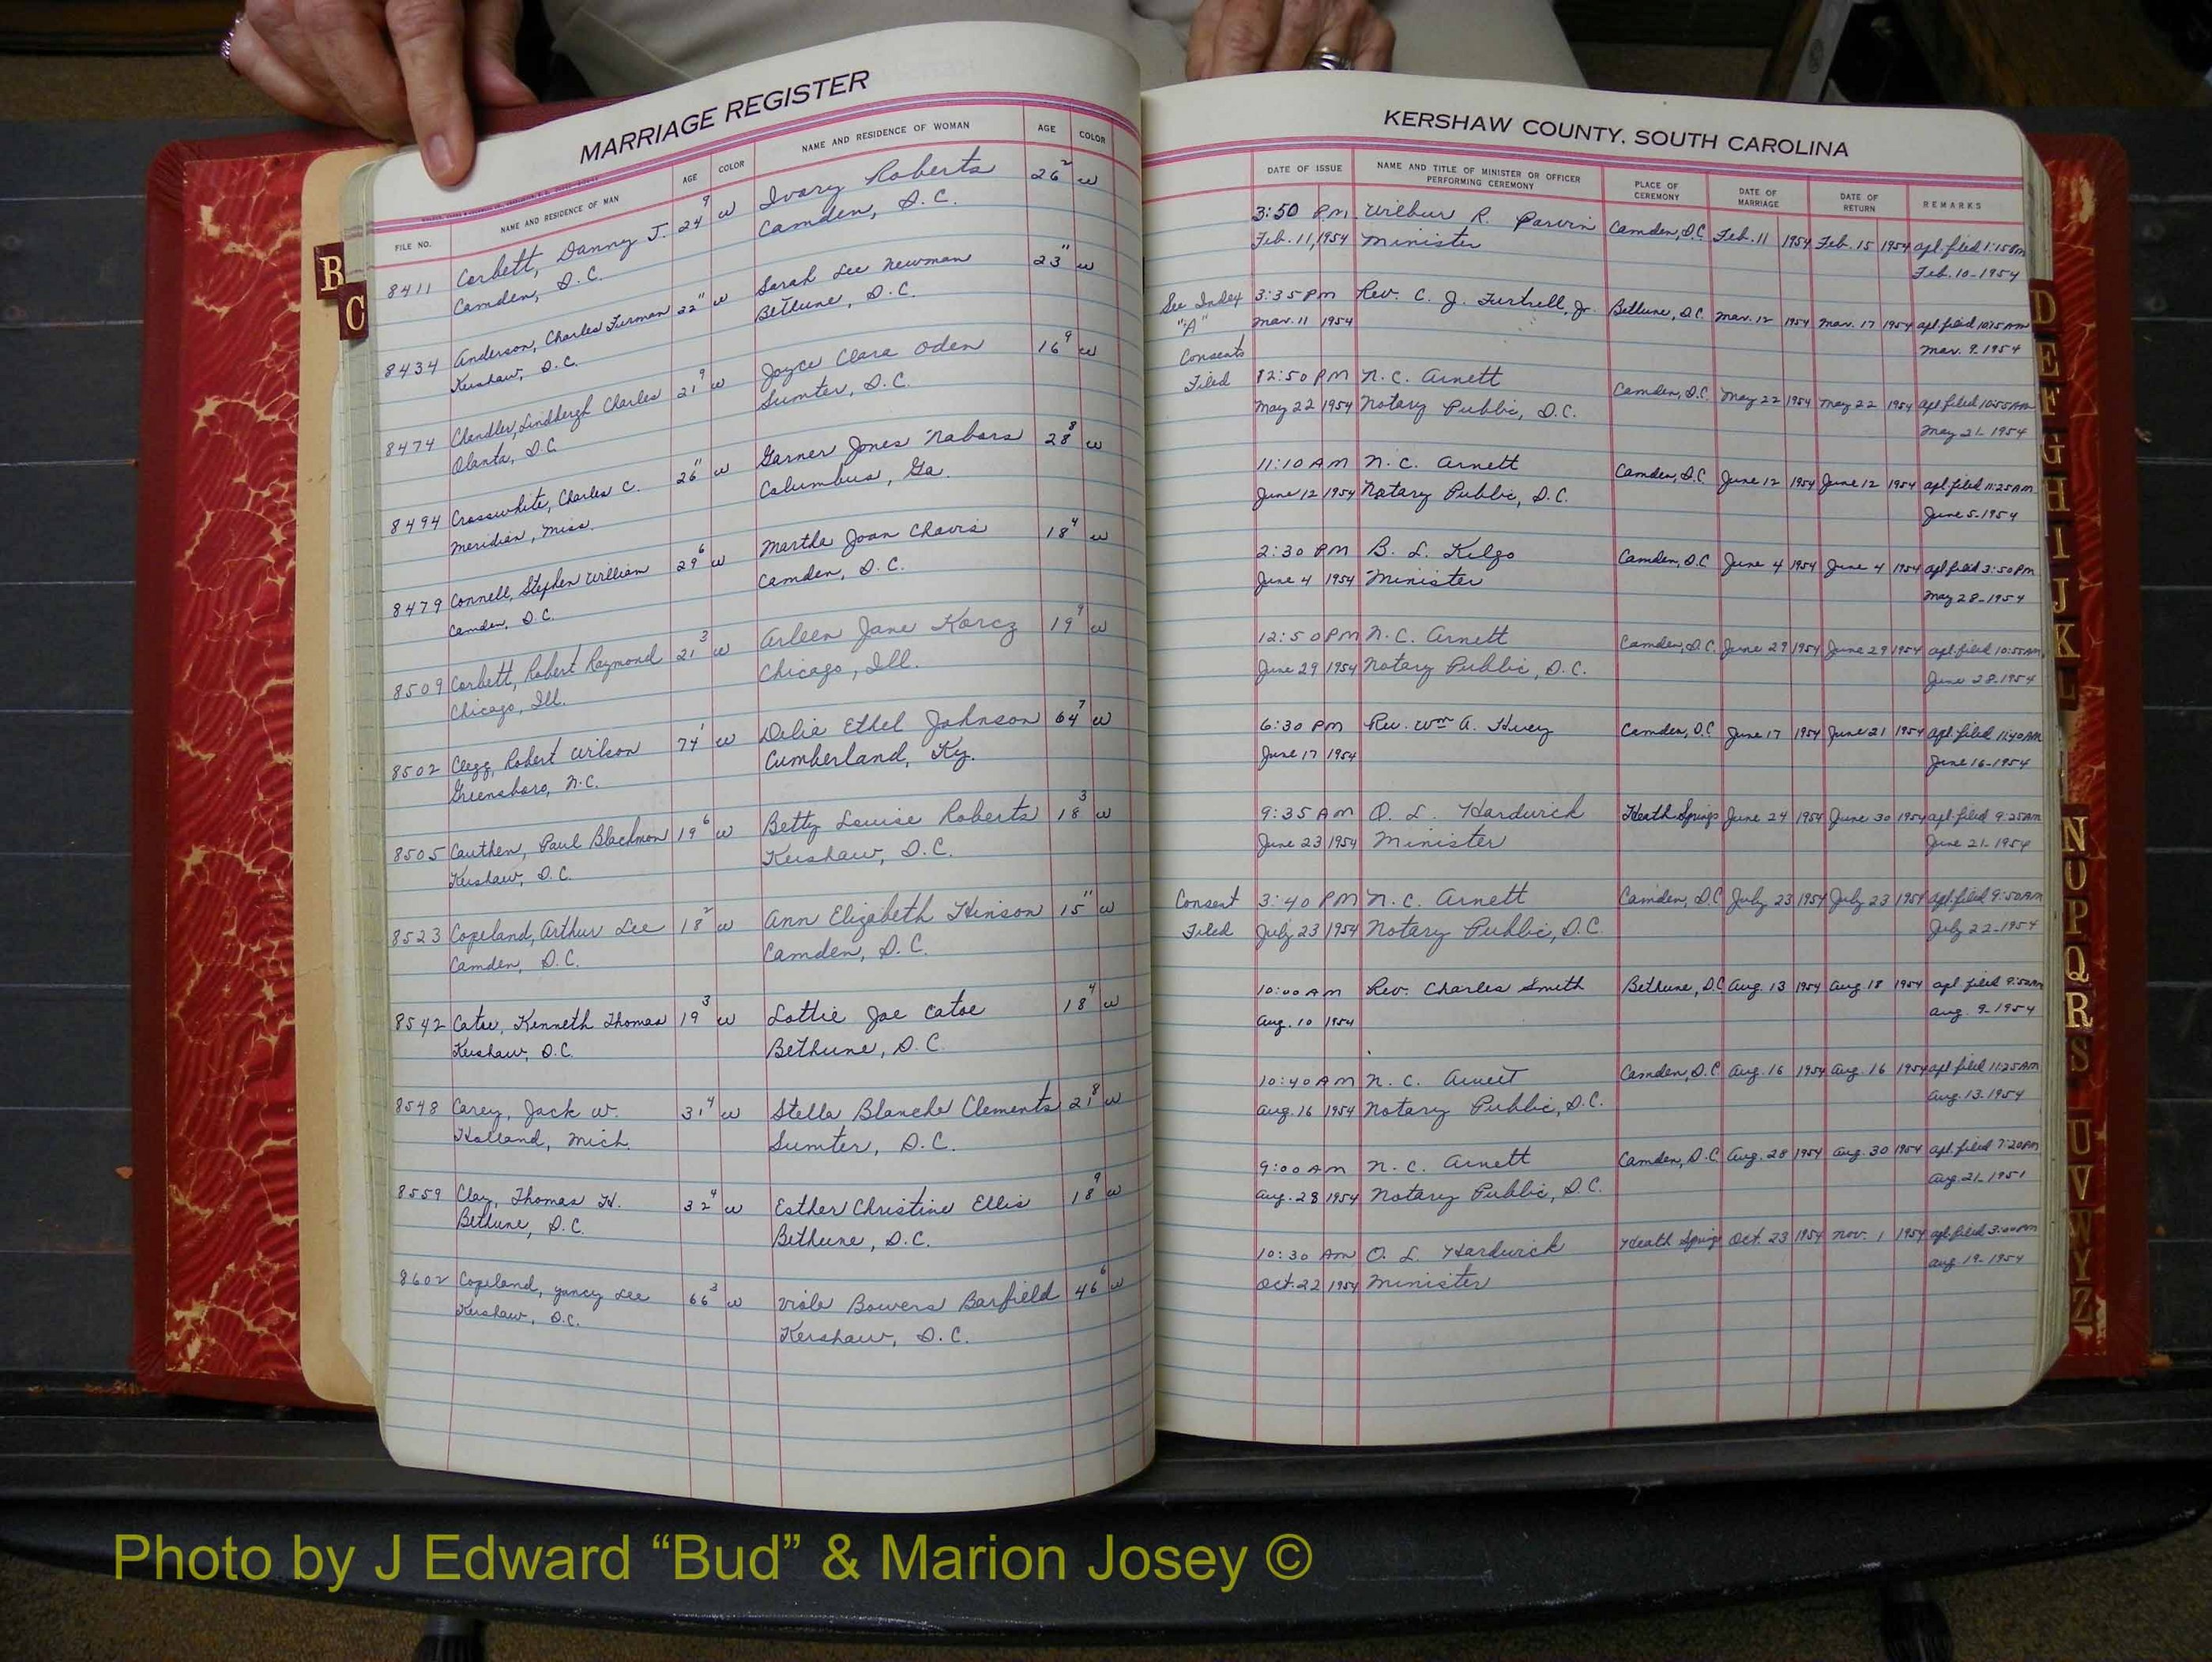 MARRIAGE REGISTER
FILE NO. NAME AND RESIDENCE OF MAN AGE COLOR NAME AND RESIDENCE OF WOMAN AGE COLOR
8411 Corbett, Danny J. 24 9 w Ivary Roberts 26 2 w
Camden, S.C. Camden, S.C.
8434 Anderson, Charles Furman 22 11 w Sarah Lee Newman 23 11 w
Kershaw, S.C. Bethune, S.C.
8474 Chandler, Lindbergh Charles 21 9 w Joyce Clara Oden 16 9 w
Olanta, S.C. Sumter, S.C.
8494 Crosswhite, Charles C. 26 11 w Garner Jones Nabors 28 8 w
Meridian, Miss. Columbus, Ga.
8479 Connell, Stephen William 29 6 w Martha Joan Chavis 18 4 w
Camden, S.C. Camden, S.C.
8509 Corbett, Robert Raymond 21 3 w Arleen Jane Korcz 19 9 w
Chicago, Ill. Chicago, Ill.
8502 Clegg, Robert Wilson 74 1 w Delia Ethel Johnson 64 7 w
Greensboro, N.C. Cumberland, Ky.
8505 Cauthen, Paul Blackmon 19 6 w Betty Louise Roberts 18 3 w
Kershaw, S.C. Kershaw, S.C.
8523 Copeland, Arthur Lee 18 2 w Ann Elizabeth Hinson 15 11 w
Camden, S.C. Camden, S.C.
8542 Catoe, Kenneth Thomas 19 3 w Lottie Joe Catoe 18 4 w
Kershaw, S.C. Bethune, S.C.
8548 Carey, Jack W. 31 4 w Stella Blanche Clements 21 8 w
Holland, Mich. Sumter, S.C.
8559 Clay, Thomas H. 32 4 w Esther Christine Ellis 18 9 w
Bethune, S.C. Bethune, S.C.
8602 Copeland, Yancy Lee 66 3 w Viola Bowers Barfield 46 6 w
Kershaw, S.C. Kershaw, S.C.
KERSHAW COUNTY, SOUTH CAROLINA
DATE OF ISSUE NAME AND TITLE OF MINISTER OR OFFICER PERFORMING CEREMONY PLACE OF CEREMONY DATE OF MARRIAGE DATE OF RETURN REMARKS
3:50 PM Wilbur R. Parvin Camden, S.C. Feb. 11 1954 Feb. 15 1954 apl. filed 1:15 PM
Feb. 11, 1954 Minister Feb. 10-1954
See Index 3:35 PM Rev. C. J. Bethune, S.C. Mar. 12 1954 Mar. 17 1954 apl. filed 10:15 AM
"A" Mar. 11 1954 Mar. 9-1954
Consents
Filed 12:50 PM N. C. Arnett Camden, S.C. May 22 1954 May 22 1954 apl. filed 10:55 AM
May 22 1954 Notary Public, S.C. May 21-1954
11:10 AM N. C. Arnett Camden, S.C. June 12 1954 June 12 1954 apl. filed 11:25 AM
June 12 1954 Notary Public, S.C. June 5-1954
2:30 PM B. L. Kilgo Camden, S.C. June 4 1954 June 4 1954 apl. filed 3:50 PM
June 4 1954 Minister May 28-1954
12:50 PM N. C. Arnett Camden, S.C. June 29 1954 June 29 1954 apl. filed 10:55 AM
June 29 1954 Notary Public, S.C. June 28-1954
6:30 PM Rev. Wm A. Huey Camden, S.C. June 17 1954 June 21 1954 apl. filed 11:40 AM
June 17 1954 June 16-1954
9:35 AM O. L. Hardwick Heath Springs June 24 1954 June 30 1954 apl. filed 9:25 AM
June 23 1954 Minister June 21-1954
Consent 3:40 PM N. C. Arnett Camden, S.C. July 23 1954 July 23 1954 apl. filed 9:50 AM
Filed July 23 1954 Notary Public, S.C. July 22-1954
10:00 AM Rev. Charles Smith Bethune, S.C. Aug. 13 1954 Aug 18 1954 apl. filed 9:50 AM
Aug. 10 1954 Aug. 9-1954
10:40 AM N. C. Arnett Camden, S.C. Aug. 16 1954 Aug. 16 1954 apl. filed 11:25 AM
Aug. 16 1954 Notary Public, S.C. Aug. 13-1954
9:00 AM N. C. Arnett Camden, S.C. Aug. 28 1954 Aug. 30 1954 apl. filed 7:20 PM
Aug. 28 1954 Notary Public, S.C. Aug. 21-1951
10:30 AM O. L. Hardwick Heath Springs Oct. 23 1954 Nov. 1 1954 apl. filed 3:00 PM
Oct. 22 1954 Minister Aug 19-1954
B
C
D
E
F
G
H
I
J
K
L
N
O
P
Q
R
S
U
V
W
Y
Z
Photo by J Edward “Bud” & Marion Josey ©